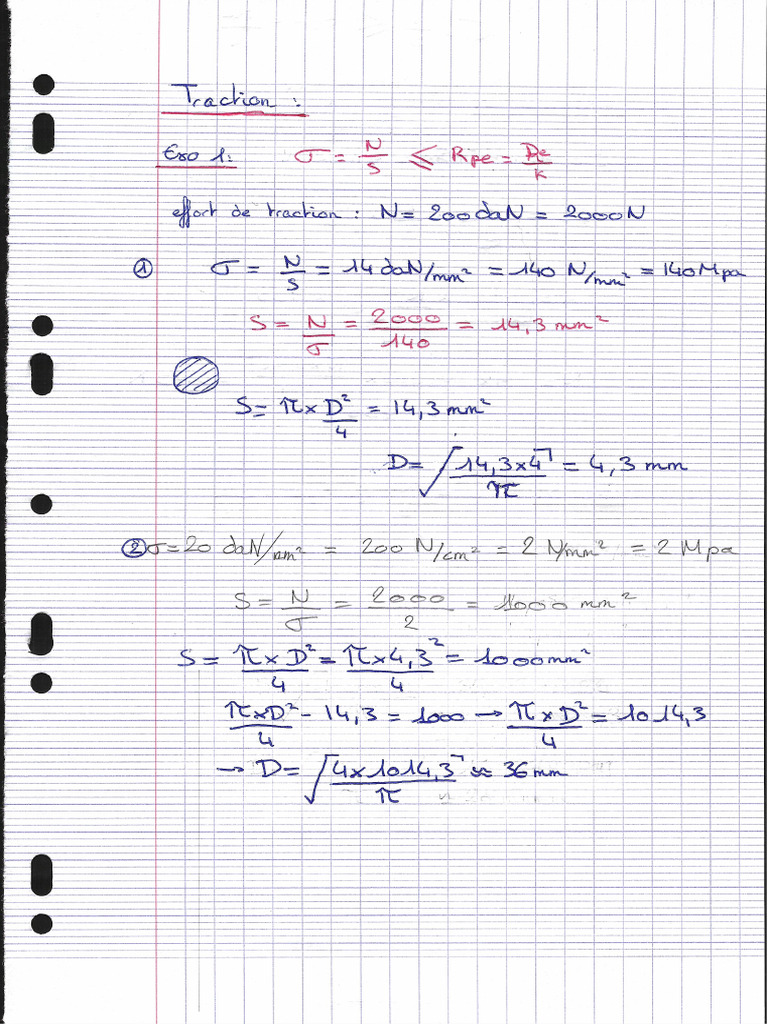 Traction :
Exo 1: σ = N/S ⩽ Rpe = Re/k
effort de traction : N = 200 daN = 2000 N
① σ = N/S = 14 daN/mm² = 140 N/mm² = 140 Mpa
S = N/σ = 2000/140 = 14,3 mm²
S = π × D²/4 = 14,3 mm²
D = √(14,3×4/π) = 4,3 mm
② σ = 20 daN/mm² = 200 N/cm² = 2 N/mm² = 2 Mpa
S = N/σ = 2000/2 = 1000 mm²
S = π×D²/4 = π×4,3²/4 = 1000 mm²
π×D²/4 - 14,3 = 1000 → π×D²/4 = 1014,3
→ D = √(4×1014,3/π) ≈ 36 mm